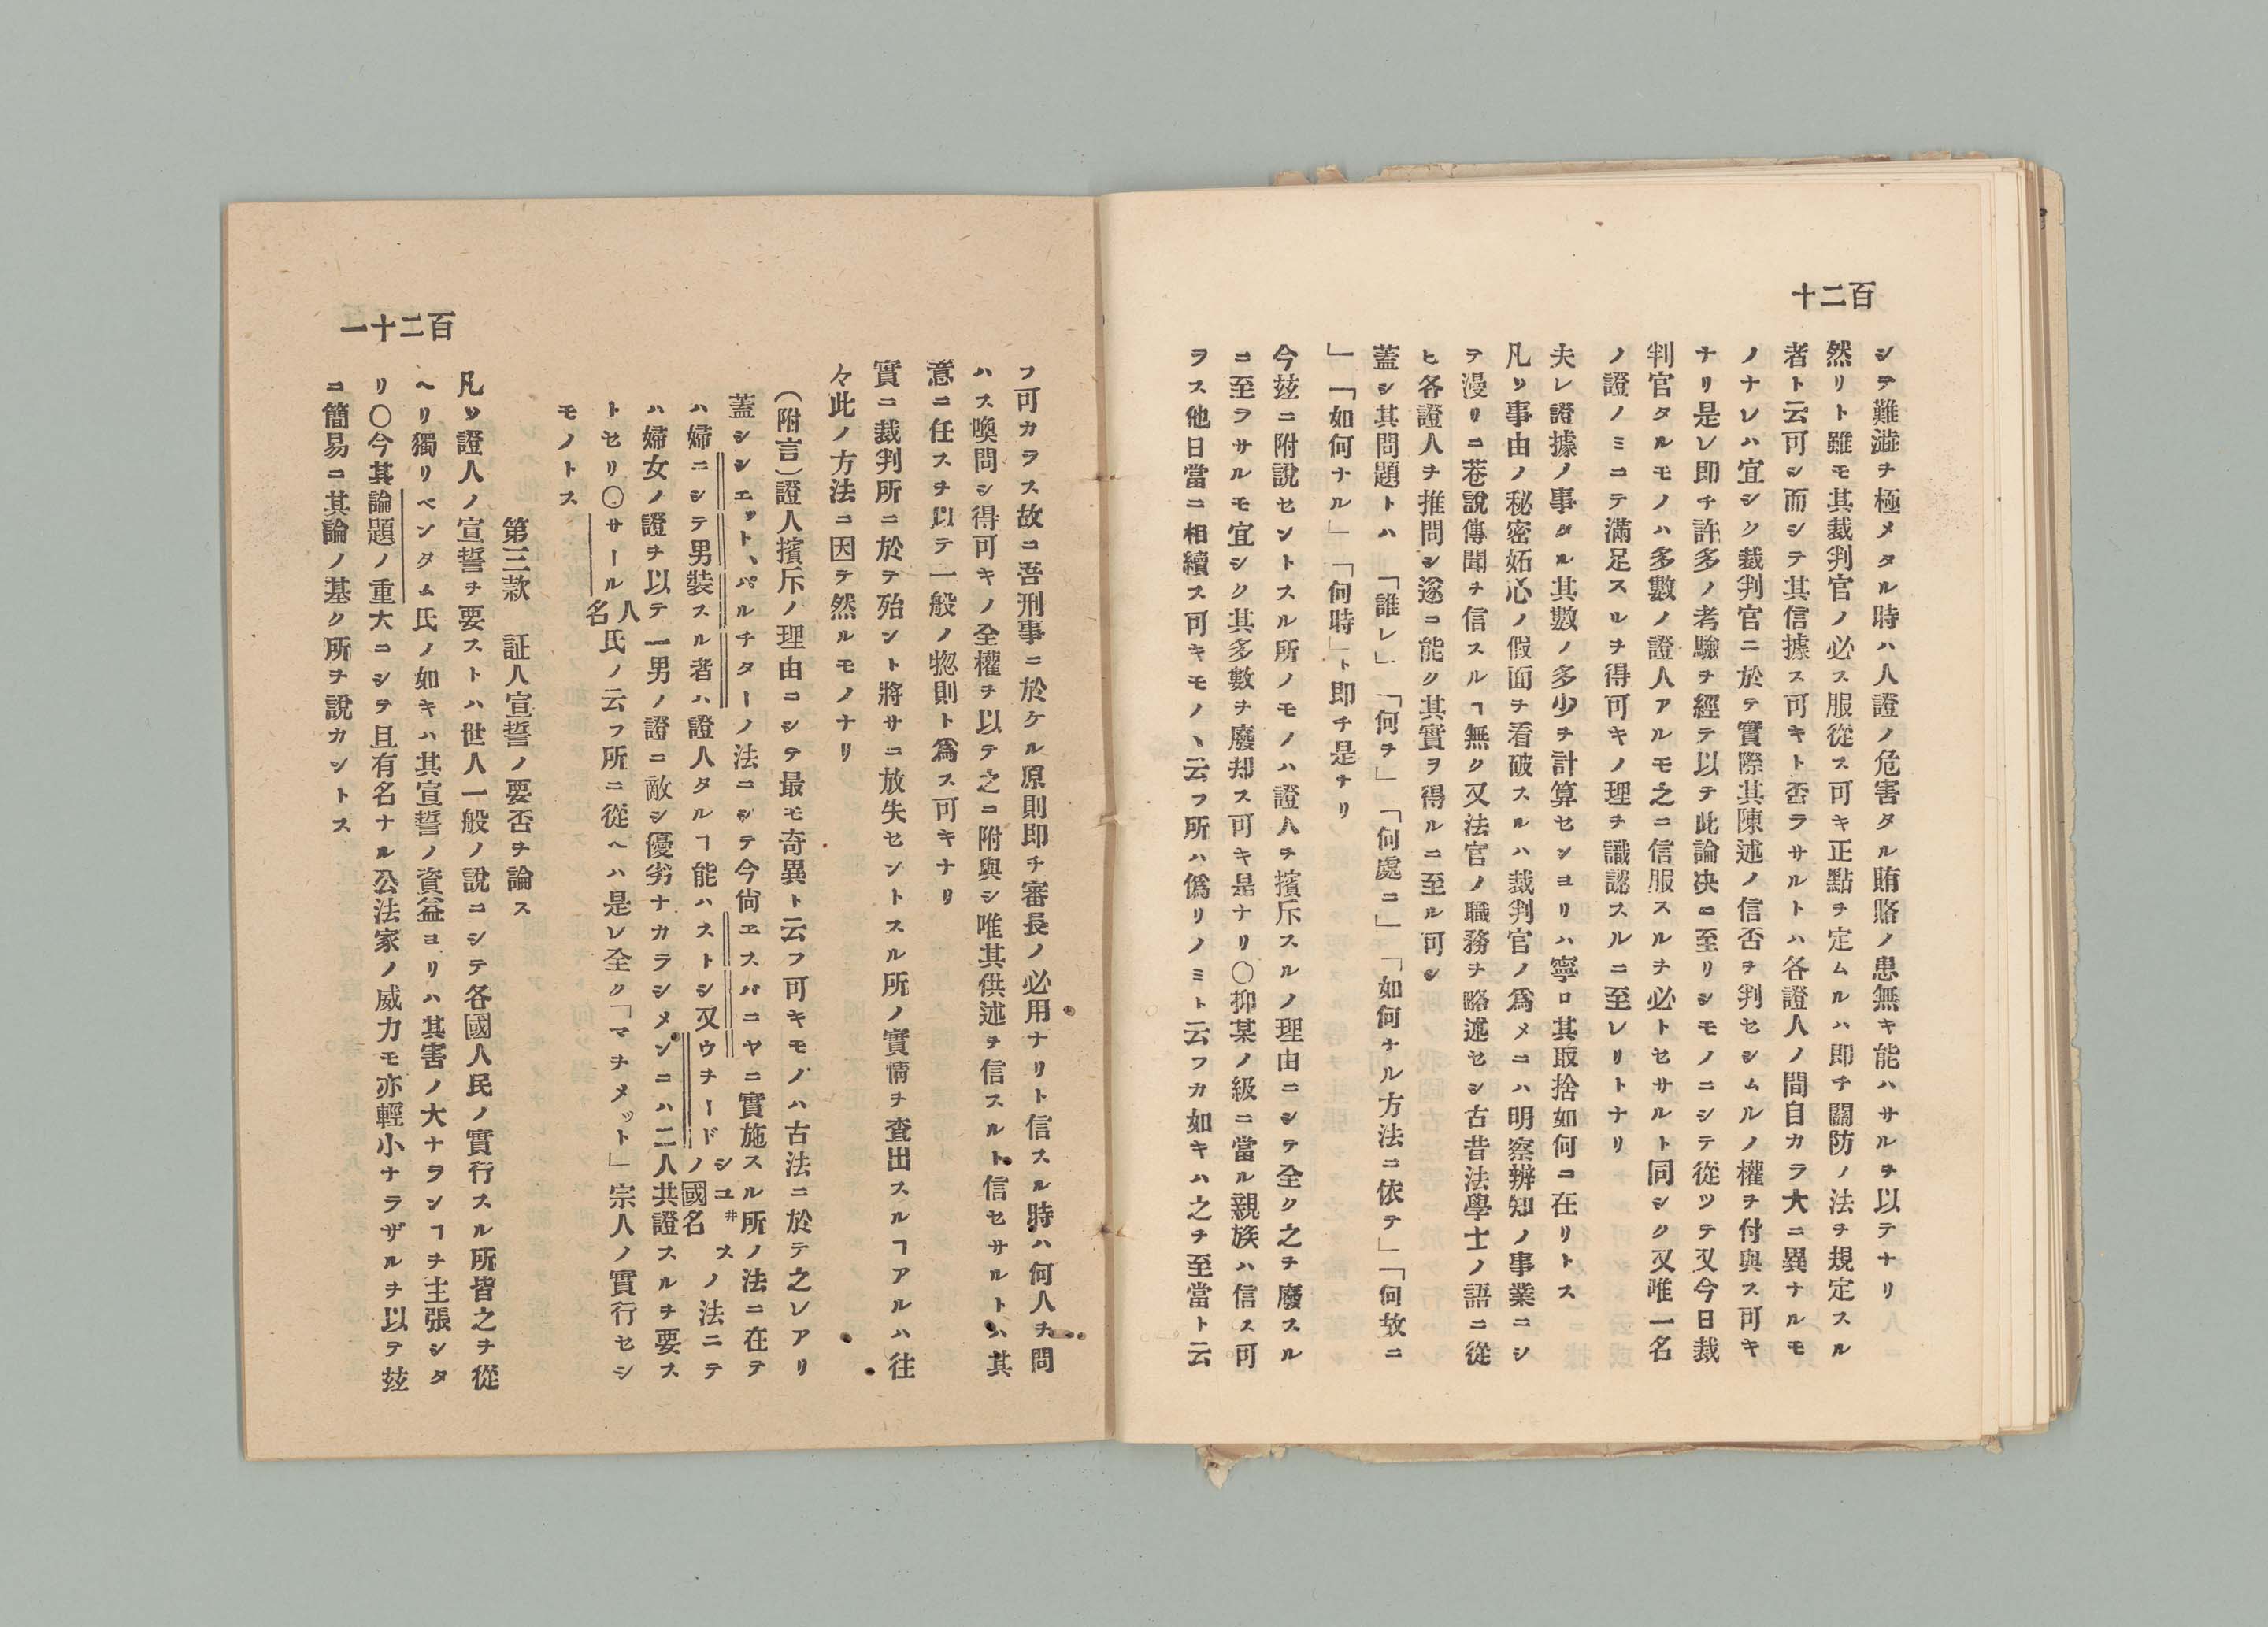 百二十
シテ難澁ヲ極メタル時ハ人證ノ危害タル賄賂ノ患無キ能ハサルヲ以テナリ
然リト雖モ其裁判官ノ必ス服從ス可キ正點ヲ定ムルハ即チ關防ノ法ヲ規定スル
者ト云可シ而シテ其信據ス可キト否ラサルトハ各證人ノ間自カラ大ニ異ナルモ
ノナレハ宜シク裁判官ニ於テ實際其陳述ノ信否ヲ判セシムルノ權ヲ付與ス可キ
ナリ是レ即チ許多ノ考驗ヲ經テ以テ此論决ニ至リシモノニシテ從ツテ又今日裁
判官タルモノハ多數ノ證人アルモ之ニ信服スルヲ必トセサルト同シク又唯一名
ノ證ノミニテ滿足スルヲ得可キノ理ヲ識認スルニ至レリトナリ
夫レ證據ノ事タル其數ノ多少ヲ計算センヨリハ寧ロ其取捨如何ニ在リトス
凡ソ事由ノ秘密妬心ノ假面ヲ看破スルハ裁判官ノ爲メニハ明察辨知ノ事業ニシ
テ漫リニ巷說傳聞ヲ信スルヿ無ク又法官ノ職務ヲ略述セシ古昔法學士ノ語ニ從
ヒ各證人ヲ推問シ遂ニ能ク其實ヲ得ルニ至ル可シ
蓋シ其問題トハ「誰レ」「何ヲ」「何處ニ」「如何ナル方法ニ依テ」「何故ニ
」「如何ナル」「何時」ト即チ是ナリ
今玆ニ附說セントスル所ノモノハ證人ヲ擯斥スルノ理由ニシテ全ク之ヲ廢スル
ニ至ラサルモ宜シク其多數ヲ廢却ス可キ是ナリ〇抑某ノ級ニ當ル親族ハ信ス可
ラス他日當ニ相續ス可キモノヽ云フ所ハ僞リノミト云フカ如キハ之ヲ至當ト云
百二十一
フ可カラス故ニ吾刑事ニ於ケル原則即チ審長ノ必用ナリト信スル時ハ何人ヲ問
ハス喚問シ得可キノ全權ヲ以テ之ニ附與シ唯其供述ヲ信スルト信セサルトハ其
意ニ任スヲ以テ一般ノ惣則ト爲ス可キナリ
實ニ裁判所ニ於テ殆ント將サニ放失セントスル所ノ實情ヲ査出スルヿアルハ往
々此ノ方法ニ因テ然ルモノナリ
(附言)證人擯斥ノ理由ニシテ最モ奇異ト云フ可キモノハ古法ニ於テ之レアリ
蓋シシエット、パルチターノ法ニシテ今尙ヱスパニヤニ實施スル所ノ法ニ在テ
ハ婦ニシテ男裝スル者ハ證人タルヿ能ハストシ又ウチードシユ井スノ國名ノ法ニテ
ハ婦女ノ證ヲ以テ一男ノ證ニ敵シ優劣ナカラシメンニハ二人共證スルヲ要ス
トセリ〇サール人名氏ノ云フ所ニ從ヘハ是レ全ク「マヲメット」宗人ノ實行セシ
モノトス
第三款　証人宣誓ノ要否ヲ論ス
凡ソ證人ノ宣誓ヲ要ストハ世人一般ノ說ニシテ各國人民ノ實行スル所皆之ヲ從
ヘリ獨リベンタム氏ノ如キハ其宣誓ノ資益ヨリハ其害ノ大ナランヿヲ主張シタ
リ〇今其論題ノ重大ニシテ且有名ナル公法家ノ威力モ亦輕小ナラザルヲ以テ玆
ニ簡易ニ其論ノ基ク所ヲ說カントス